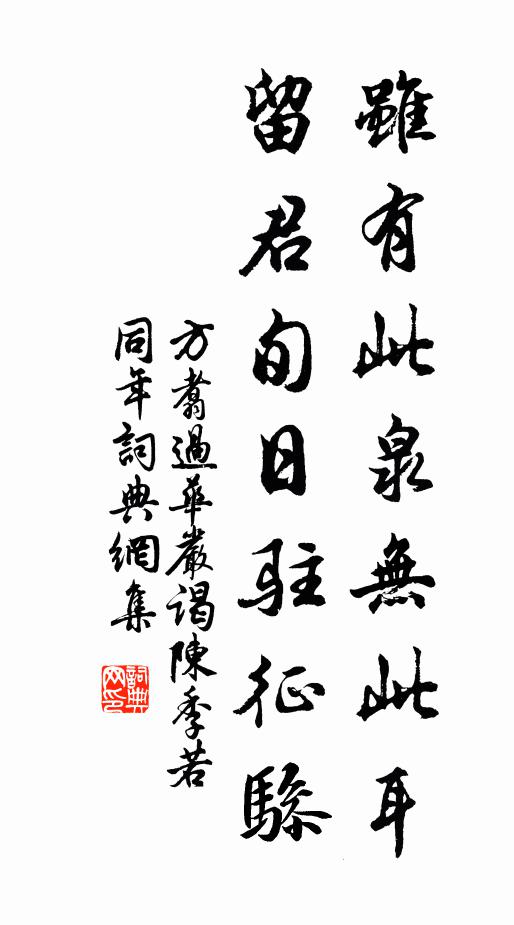 雖有此泉無此耳
留君旬日駐征驂
方翥過華嚴謁陳季若
同年詞典網集
詞典網印